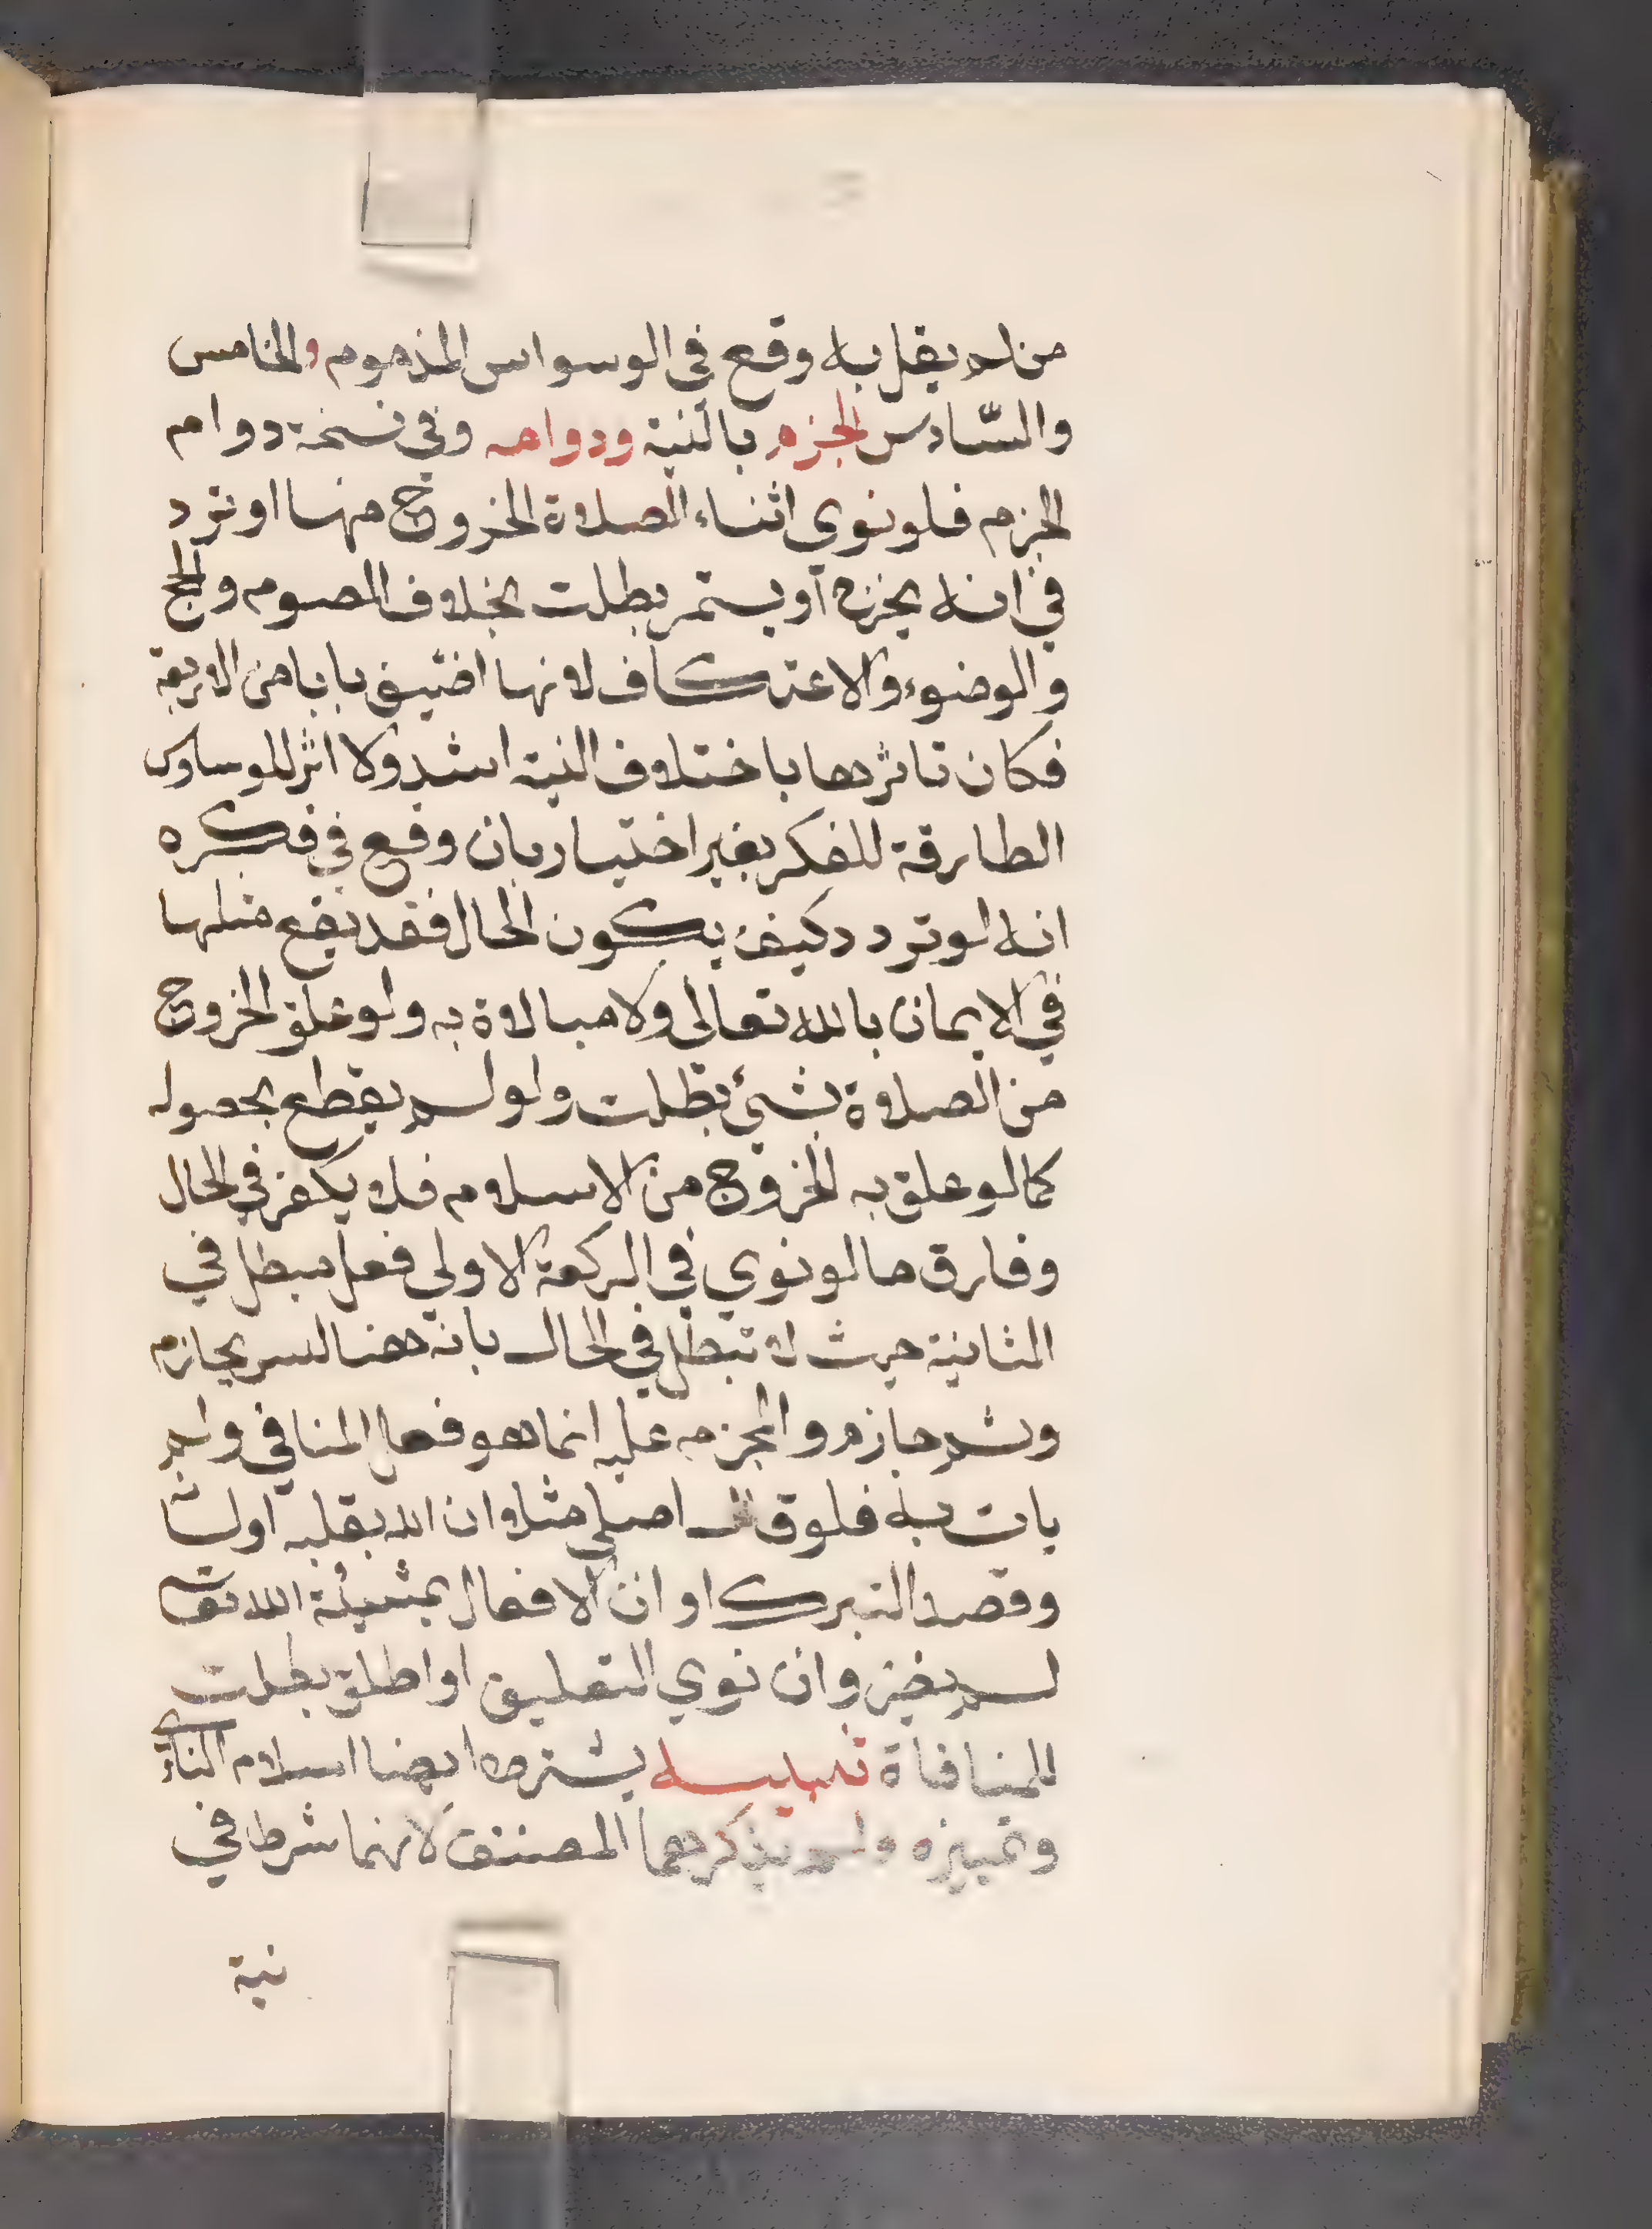 من لم يقل به وقع في الوسواس المذموم والخامس
والسّادس الجزم بالنية ودوامه وفي نسخة دوام
الجزم فلو نوي اثناء الصلاة الخروج منها او تردد
في انه يخرج او يستمر بطلت بخلاف الصوم والحج
والوضوء والاعتكاف لانها اضيق بابا من الاربعة
فكان تاثرها باختلاف النية اشد ولا اثر للوساوس
الطارقة للفكر بغير اختيار بان وقع في فكره
انه لو تردد كيف يكون الحال فقد يقع مثلها
في الايمان بالله تعالى ولا مبالاة به ولو علق الخروج
من الصلاة بشئ بطلت ولو لم يقطع بحصوله
كما لو علق به الخروج من الاسلام فلا يكفر في الحال
وفارق ما لو نوي في الركعة الاولي فعل مبطل في
الثانية حيث لا تبطل في الحال بانه هنا ليس بجازم
وثم جازم والجزم عليه انما هو فعل المنافي ولم
يات به فلو قال اصلي مثلا ان الله بقلبه او لسا
وقصد التبرك او ان الافعال بمشيئة الله تعا
لم يضر وان نوي التعليق او اطلق بطلت
للمنافاة تنبيه يشترط ايضا اسلام الناوي
وتمييزه ولم يذكرهما المصنف لانهما شرط في
نية